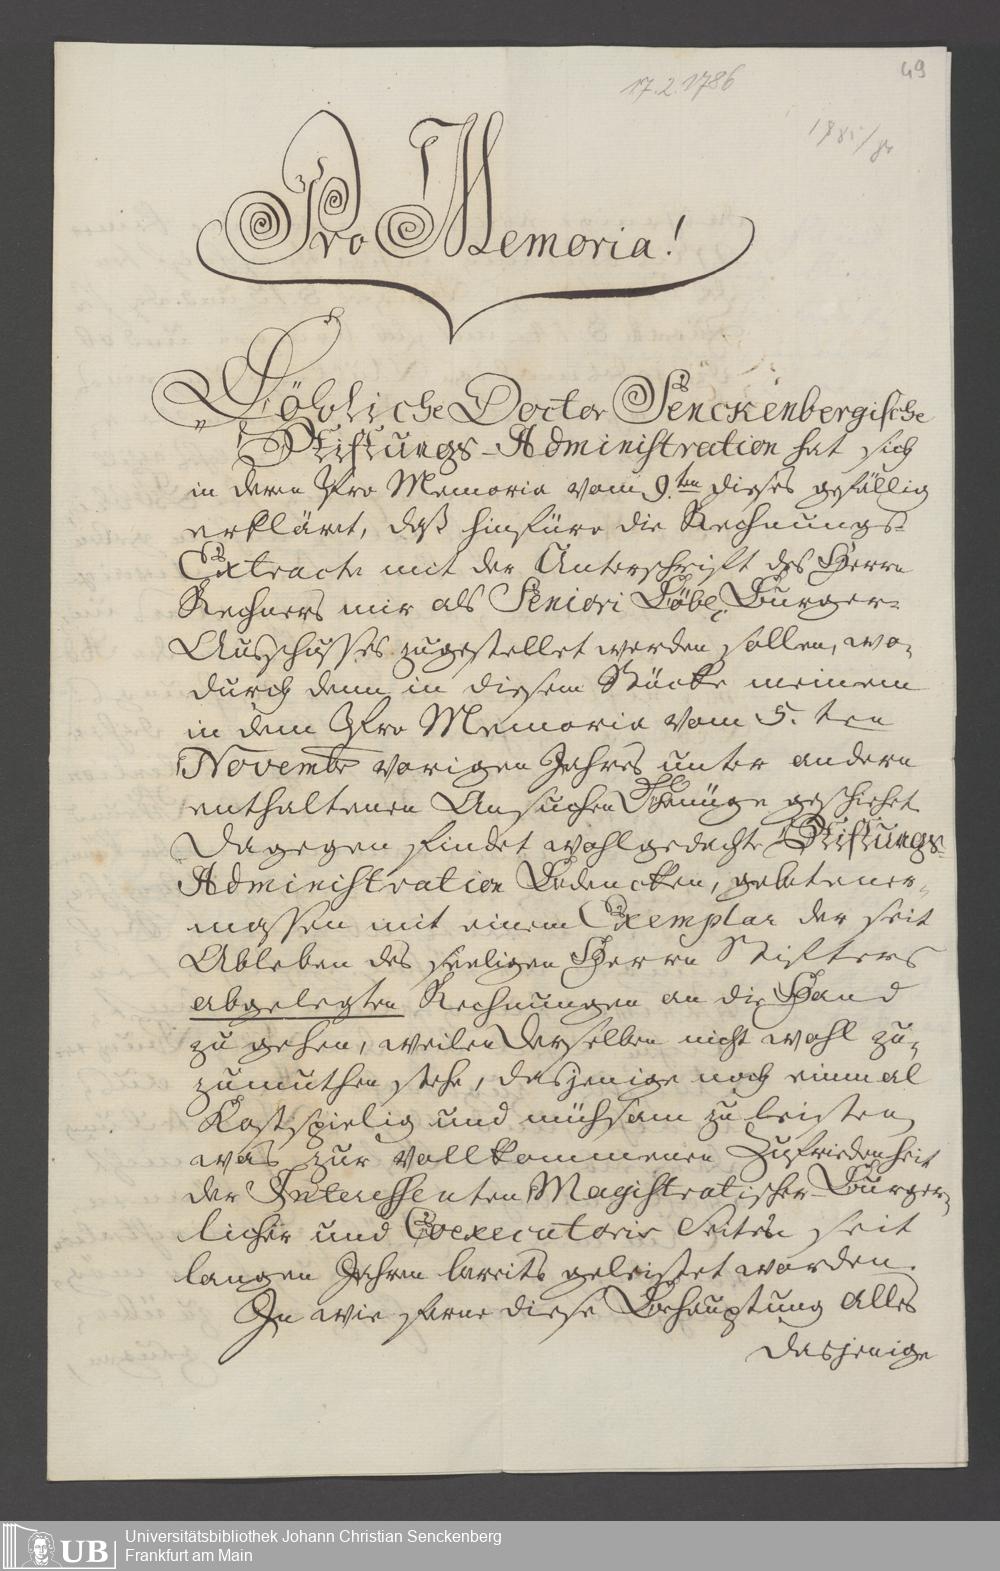 49
17.2.1786
1785/86
Pro Memoria!
Löbliche Doctor Senckenbergische
Stiftungs-Administration hat sich
in deren Pro Memoria vom 9.ten dieses gefällig
erkläret, daß hinfüro die Rechnungs-
Extracte mit der Unterschrift des Herrn
Rechners mir als Seniori Löbl. Burger-
Ausschusses zugestellet werden sollen, wo-
durch denn in diesem Stücke meinem
in dem Pro Memoria vom 5. ten
Novembr vorigen Jahres unter andern
enthaltenen Ansuchen Genüge geschiehet
Dagegen findet wohlgedachte Stiftungs-
Administration Bedencken, gebetener-
massen mit einem Exemplar der seit
Ableben des seeligen Herrn Stifters
abgelegten Rechnungen an die Hand
zu gehen, weilen Derselben nicht wohl zu-
zumuthen stehe, dasjenige noch einmal
Kostspielig und mühsam zu leisten,
was zur vollkommenen Zufriedenheit
der Interessenten Magistratischer-Burger-
licher und Coexecutoris Seiten seit
langen Jahren bereits geleistet worden.
In wie ferne diese Behauptung alles
dasjenige
UB
Universitätsbibliothek Johann Christian Senckenberg
Frankfurt am Main